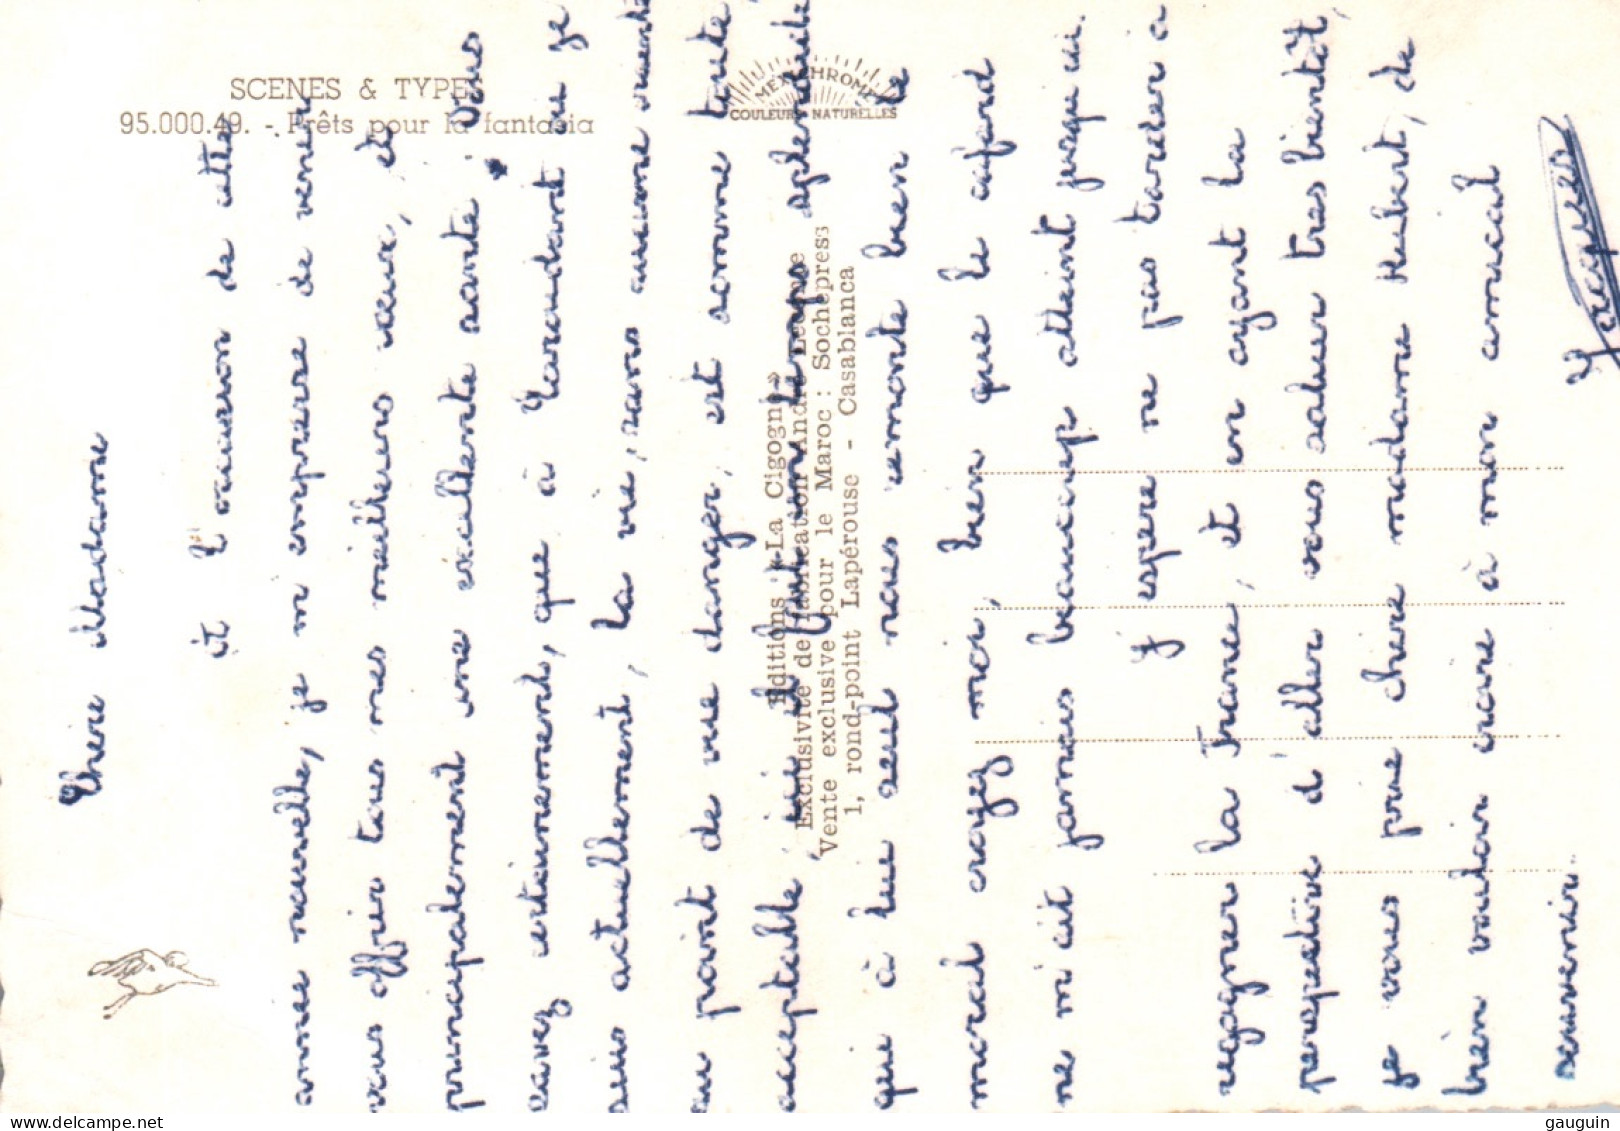 SCENES & TYPES
95.000.49. - Prêts pour la fantasia
MEXICHROME
COULEURS NATURELLES
Editions «La Cigogne»
Exclusivité de fabrication André Leconte
Vente exclusive pour le Maroc : Sochepress
1, rond-point Lapérouse - Casablanca
Chère Madame
à l'occasion de cette
année nouvelle, je m'empresse de venir
vous offrir tous mes meilleurs vœux, et
principalement une excellente santé. Vous
savez certainement, que à Taroudant ou je
suis actuellement, la vie, sans aucune
au point de vue danger, est somme toute
acceptable, un temps splendide
que à lui seul nous remonte bien le
moral croyez moi, bien que le cafard
ne m'ait jamais beaucoup atteint jusqu'ici.
J'espere ne pas tarder a
regagner la France, et en ayant la
perspective d'aller vous saluer tres bientôt,
je vous prie chere madame Hubert, de
bien vouloir croire à mon amical
souvenir.
Jacques
gauguin